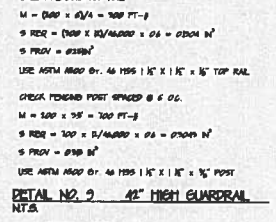 M = (200 x 6)/4 = 300 FT-#
S REQ = (300 X 12)/46,000 x 0.6 = 0.1304 IN³
S PROV =
USE ASTM A500 Gr. 46 HSS 1 ½" X 1 ½" X TOP RAIL
CHECK FENCING POST SPACED @ 6' O.C.
M = 200 x 3.5' = 700 FT-#
S REQ = 700 X 12/46,000 x 0.6 = IN³
S PROV = IN³
USE ASTM A500 Gr. 46 HSS 1 ½" X 1 ½" X POST
DETAIL NO. 9 42" HIGH GUARDRAIL
N.T.S.